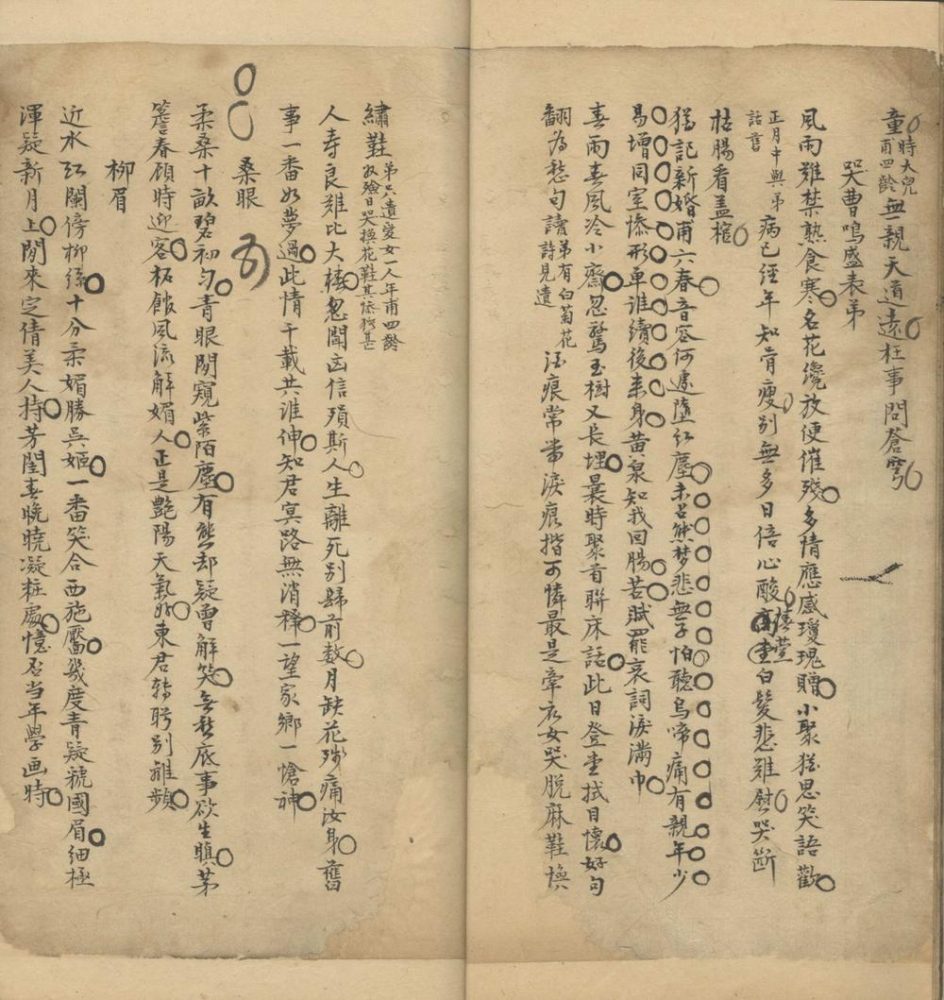 童時大兒甫四齡無親天道遠枉事問蒼穹
哭曹鳴盛表弟
風雨難禁熟食寒名花纔放便催殘多情應感瓊瑰贈小聚猶思笑語歡
正月中與弟話舊病已經年知骨瘦別無多日倍心酸椿萱白髮悲難慰哭斷
枯腸看蓋棺
猶記新婚甫六春音容何遽墮紅塵未召熊夢悲無子怕聽烏啼痛有親年少
易增同室慘形單誰續後來身黃泉知我回腸苦賦罷哀詞淚滿巾
春雨春風冷小齋忽驚玉樹又長埋曩時聚首聯床話此日登堂拭目懷好句
翻為愁句讀弟有白菊花詩見遺酒痕常帶淚痕揩可憐最是牽衣女哭脫麻鞋換
繡鞋弟只遺愛女一人年甫四齡收殮日哭換花鞋其依稀甚
人壽良難比大椿忽聞凶信殞斯人生離死別歸前數月缺花殘痛汝身舊
事一番如夢過此情千載共誰伸知君冥路無消釋一望家鄉一愴神
桑眼
柔桑十畝碧初勻青眼閒窺紫陌塵有態却疑曾解笑無愁底事欲生瞋茅
簷春顧時迎客柘館風流解媚人正是艷陽天氣好東君轉盻別離頻
柳眉
近水紅闌傍柳絲十分柔媚勝吳姬一番笑合西施黶幾度青疑虢國眉細極
渾疑新月上閒來定倩美人持芳閨春晚曉凝粧處憶否当年學画時